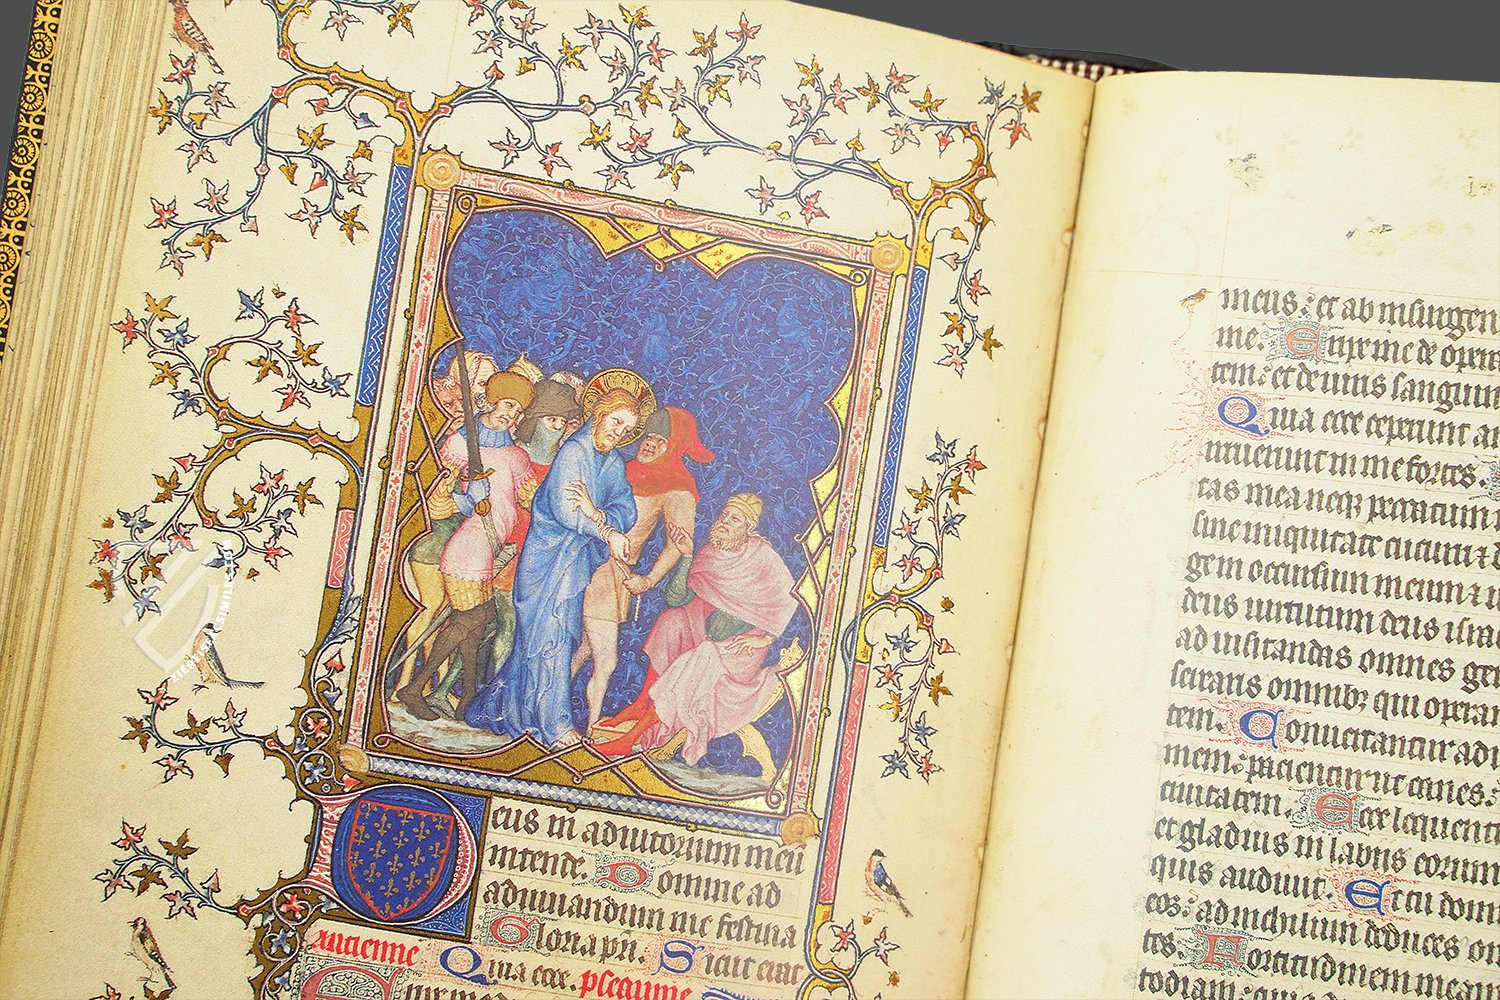 Deus in adiutorium meū
intende. Domine ad
adiuuandum me festina
Gloria pr̄i. Sicut erat
antienne Quia ecce. pseaume
meus: et ab insurgen
me. Eripe me de opera
tem: et de uiris sanguin
Quia ecce ceperunt a
irruerunt in me fortes.
tas mea neq; peccatum
sine iniquitate cucurri
gem occursum meum et u
deus uirtutum deus isra
ad uisitandas omnes gen
seraris omnibꝫ qui operan
tem. Conuertantur ad
mem: pacientur ut canes:
ciuitatem. Ecce loquent
et gladius in labiis eorum
quis audiuit. Et tu domi
eos: ad nichilum deduces om
tes. Fortitudinem meam
todiam: